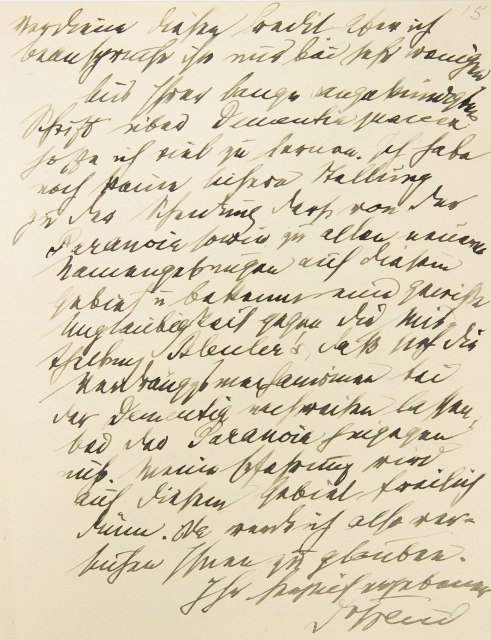 15
verdiene diesen Kredit. Aber ich
beanspruche ihn nur bei sehr wenigen
Aus Ihrer lange angekündigten
Schrift über Dementia praecox
hoffe ich viel zu lernen. Ich habe
noch keine sichere Stellung
zu der Scheidung ders. von der
Paranoia sowie zu allen neueren
Namengebungen auf diesem
Gebiet u bekenne eine gewisse
Ungläubigkeit gegen die Mit
theilung Bleuler's, daß sich die
Verdrängungsmechanismen bei
der Dementia nachweisen lassen,
bei der Paranoia hingegen
nicht. Meine Erfahrung wird
auf diesem Gebiet freilich
dünn. Da werde ich also ver-
suchen Ihnen zu glauben.
Ihr herzlich ergebener
Dr Freud